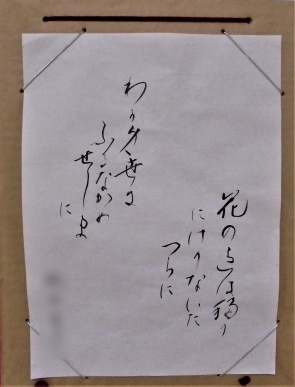 花の色は移り
にけりないた
つらに
わか身世に
ふるなかめ
せしま
に